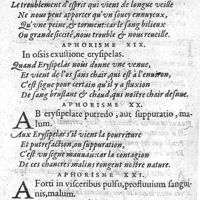 Le troublement d'esprit qui vient de longue veille
Ne nous peut apporter qu'un soucy ennuyeux,
Qu'vne peine, & torment: car le sang bilieux
Ou grande siccité, nous trouble & nous reueille.
APHORISME XIX.
In ossis exustione erysipelas.
Quand Erysipelas nous donne vne venue,
Et vient de l'os sans chair, qui est à l'enuiron,
C'est signe pour certain qu'il y a fluxion
De sang bruslant & chaud, qui nostre chair desnue.
APHORISME XX.
AB erysipelate putredo, aut suppuratio, malum.
Aux Erysipelas s'il vient la pourriture
Et putrefaction, ou suppuration,
C'est vn signe mauuais: car la contagion
De ces chancres malins rongent nostre nature.
APHORISME XXI.
A Forti in visceribus pulsu, profluuium sanguinis, malum.